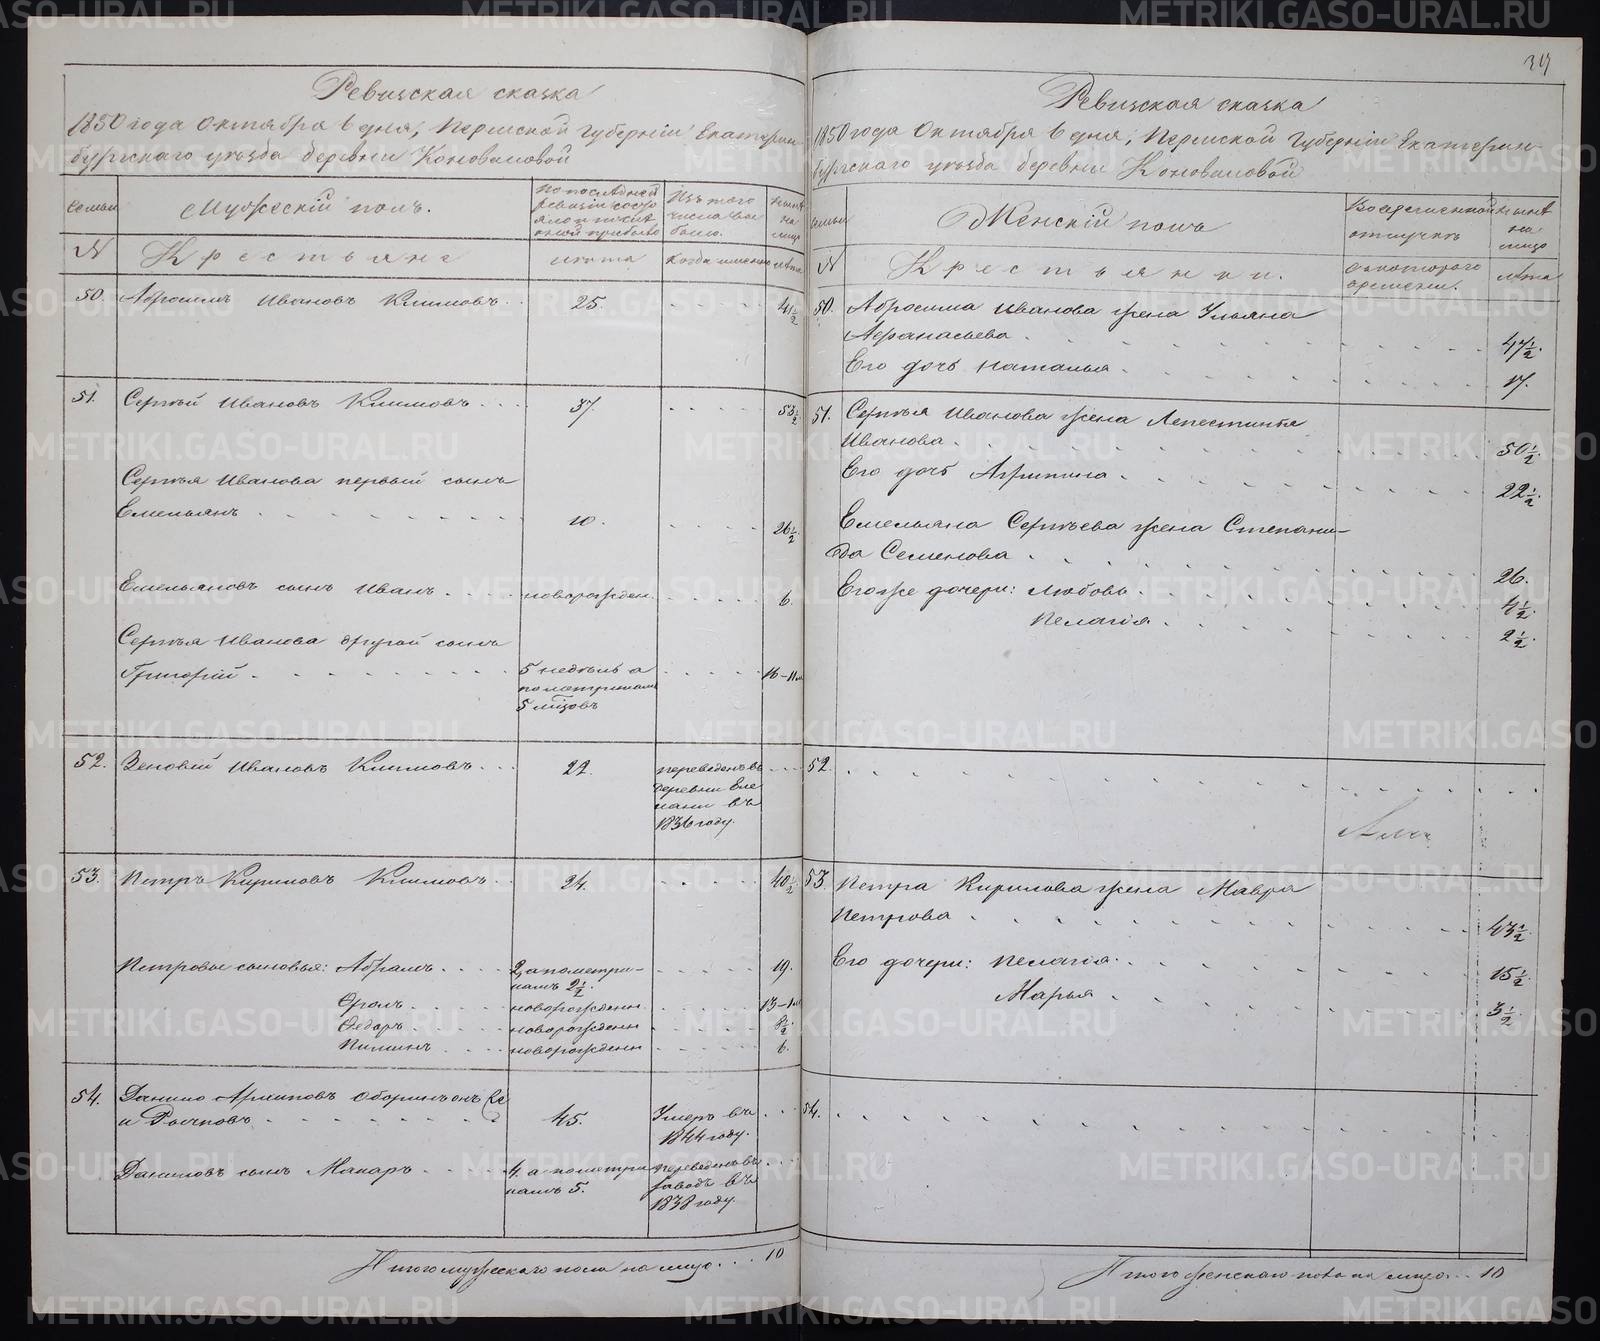 Ревизская сказка
1850 года Октября 6 дня, Пермской Губерніи Екатерин-
бургскаго уѣзда деревни Коноваловой
Семьи
Мужескій полъ.
По последней
ревизіи состо
яло и после
оной прибыло
Изъ того
числа вы
было.
Нынѣ
на
лицо
N
Крестьяне
лѣта
Когда именно
лѣта
50.
Абросимъ Ивановъ Климовъ
25.
41½
51.
Сергѣй Ивановъ Климовъ
37.
53½
Сергѣя Иванова первый сынъ
Емельянъ
10.
26½
Емельяновъ сынъ Иванъ
новорожден.
6.
Сергѣя Иванова другой сынъ
Григорій
5 недѣль а
по метрикамъ
5 мѣцовъ
16-11м
52.
Зеновій Ивановъ Климовъ
22.
переведенъ въ
деревни Еле
въ
1836 году.
53.
Петръ Кириловъ Климовъ
24.
40½
Петровы сыновья: Абрамъ
2, а по метри-
камъ 2½.
19.
Фролъ
новорожденн
13-1м
Федоръ
новорожденн
8½.
Пиминъ
новорожденн
6.
54.
Данило Архиповъ Оборинъ онъ же
и Рычковъ
45.
Умеръ въ
1844 году.
Даниловъ сынъ Макаръ
4, а по метри
камъ 5.
переведенъ въ
заводъ въ
1838 году.
Итого мужескаго пола на лицо 10
34
Ревизская сказка
1850 года Октября 6 дня, Пермской Губерніи Екатерин-
бургскаго уѣзда деревни Коноваловой
Семьи
Женскій полъ
Во временной
отлучкѣ
Нынѣ
на
лицо
N
Крестьянки.
Съ котораго
времени.
лѣта
50.
Абросима Иванова жена Ульяна
Афанасьева
47½.
Его дочь Наталья
17.
51.
Сергѣя Иванова жена Лепестинья
Иванова
50½.
Его дочь Агрипина
22½.
Емельяна Сергѣева жена Степани-
да Семенова
26.
Его же дочери: Любовь
4½.
Пелагія
2½.
52.
53.
Петра Кирилова жена Мавра
Петрова
43½.
Его дочери: Пелагія
15½.
Марья
3½.
54.
Итого женскаго пола на лицо 10
METRIKI.GASO-URAL.RU